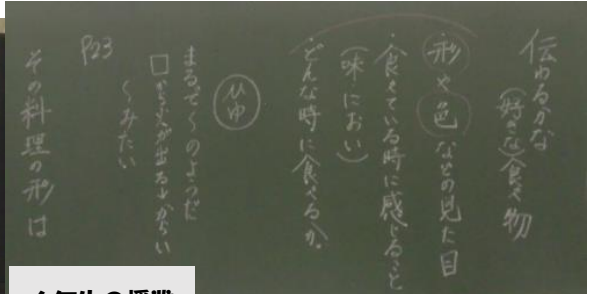 伝わるかな
(好きな)食べ物
形や色などの見た目
・食べている時に感じること
(味・におい)
・どんな時に食べるか。
ひゆ
まるで〜のようだ
口から火が出るよからい
〜みたい
P23
その料理の形は